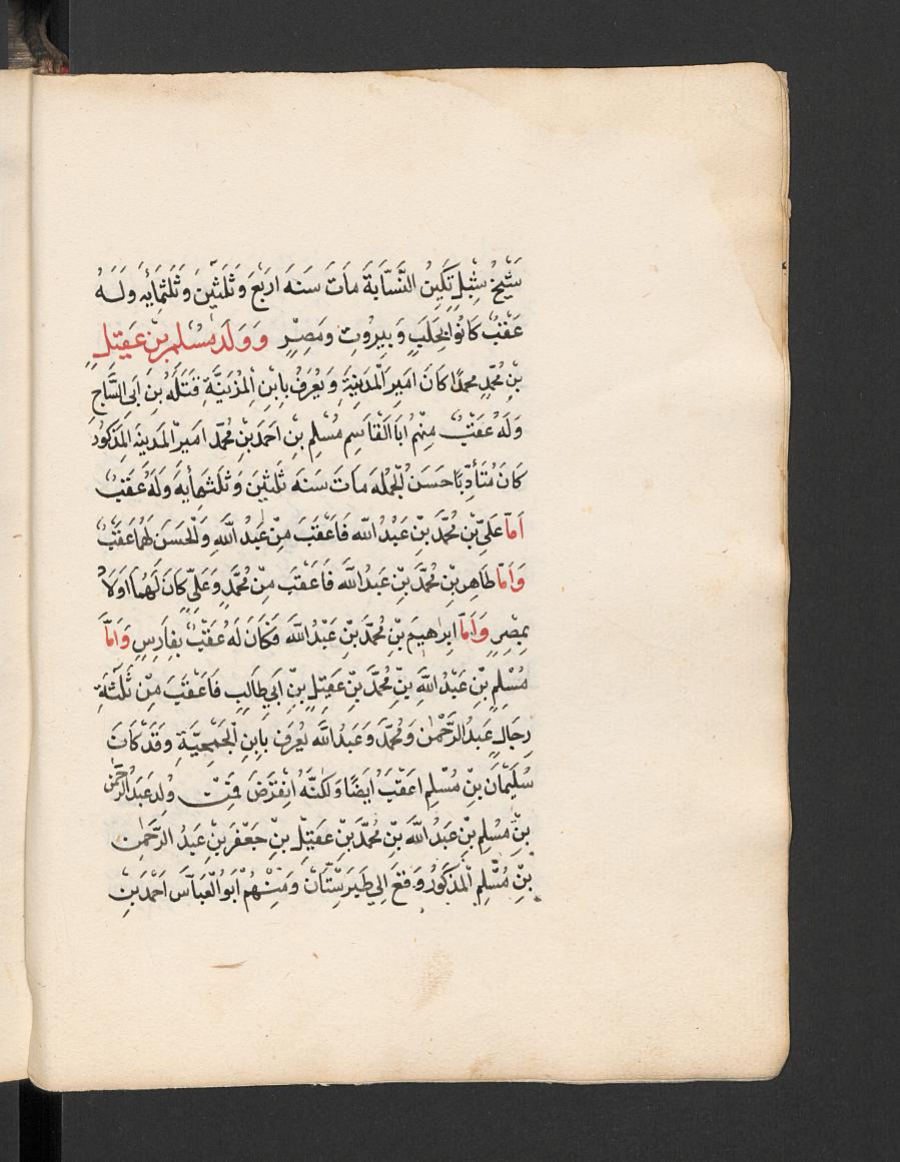 شَيْخُ شِبْلِ تَكِينُ النَّسَّابَةَ مَاتَ سَنَه اربَعَ وَثَلثينَ وَثَلثمَايَه وَلَهُ
عَقْبُ كَانُوا بحَلَبِ وَبيروتِ ومَصِرِ وَوَلَد مُسْلِم بِنْ عَقِيلِ
بِنْ مُحَمَّدٍ محمدًا كَانَ امَير المدَينَةِ وَيُعْرَفُ بابنِ المُزَنِيَّةِ قتَلَهُ بنَ ابَى السَّاجِ
وَلَهُ عَقبُ مِنْهُم ابَا القَاسِم مُسْلِم بنِ احمَدَ بنِ مُحَمَّد امَير المدَينَه المذكوُرَ
كَانَ مُتَأدِّبًا حَسَن الجُملَه مَاتَ سَنَه ثَلثينَ وَثَلَثمَأيَه وَلَهُ عَقَبُ
اَمَّا عَلَىّ بْن مُحَمَّدَ بنِّ عَبْدُ الله فَاَعْقَبَ مِنْ عَبدُ اللهِ وَالحَسَنَ لهُمَا عَقَبُ
وَاَمَّا طَاهِر بنِّ مُحَمَّدَ بنِّ عَبدُ اللهَ فاَعَقَبَ مِنْ مُحَمَّدٍ وَعَلىٍّ كَانَ لَهُمَا اولَادُ
بمِصِرٍ وَاَمَّا ابرٰهيَم بنِ مُحَمَّدَ بنّ عَبْدُ اللهَ فَكَانَ لَهُ عَقْبُ بفَارِسٍ وَامَّا
مُسْلِمِ بنِّ عَبْدُ اللهِ بنِ مُحمَّدَ بنِّ عَقِيلِ بنِ اَبي طَالِبِ فَاَعَقَبَ مِنْ ثَلَثَةِ
رِجَالٍ عَبدُ الرَّحْمٰن وَمُحمَّدَ وَعَبدُ اللهَ يُعْرَف بابنِ الجُمَحِيَّةِ وَقَدْ كَانَ
سُلَيْمَانَ بنِّ مُسْلِم اعَقَبَ ايَضًا وَلكنَّهُ انقَرَضَ فمِنْ ولِد عَبدَ الرَّحمٰن
بنِّ مُسْلِم بنِّ عَبدُ اللهَ بنِّ مُحمَّدَ بنْ عَقِيلِ بنِّ جَعْفَرَ بْنِ عَبدُ الرَّحمٰن
بنِّ مُسْلِم المذَكورُ وَقَعَ الِي طَبَرستَانَ وَمَنِهُمْ ابَو العَبَاسّ احمَدَ بنِ